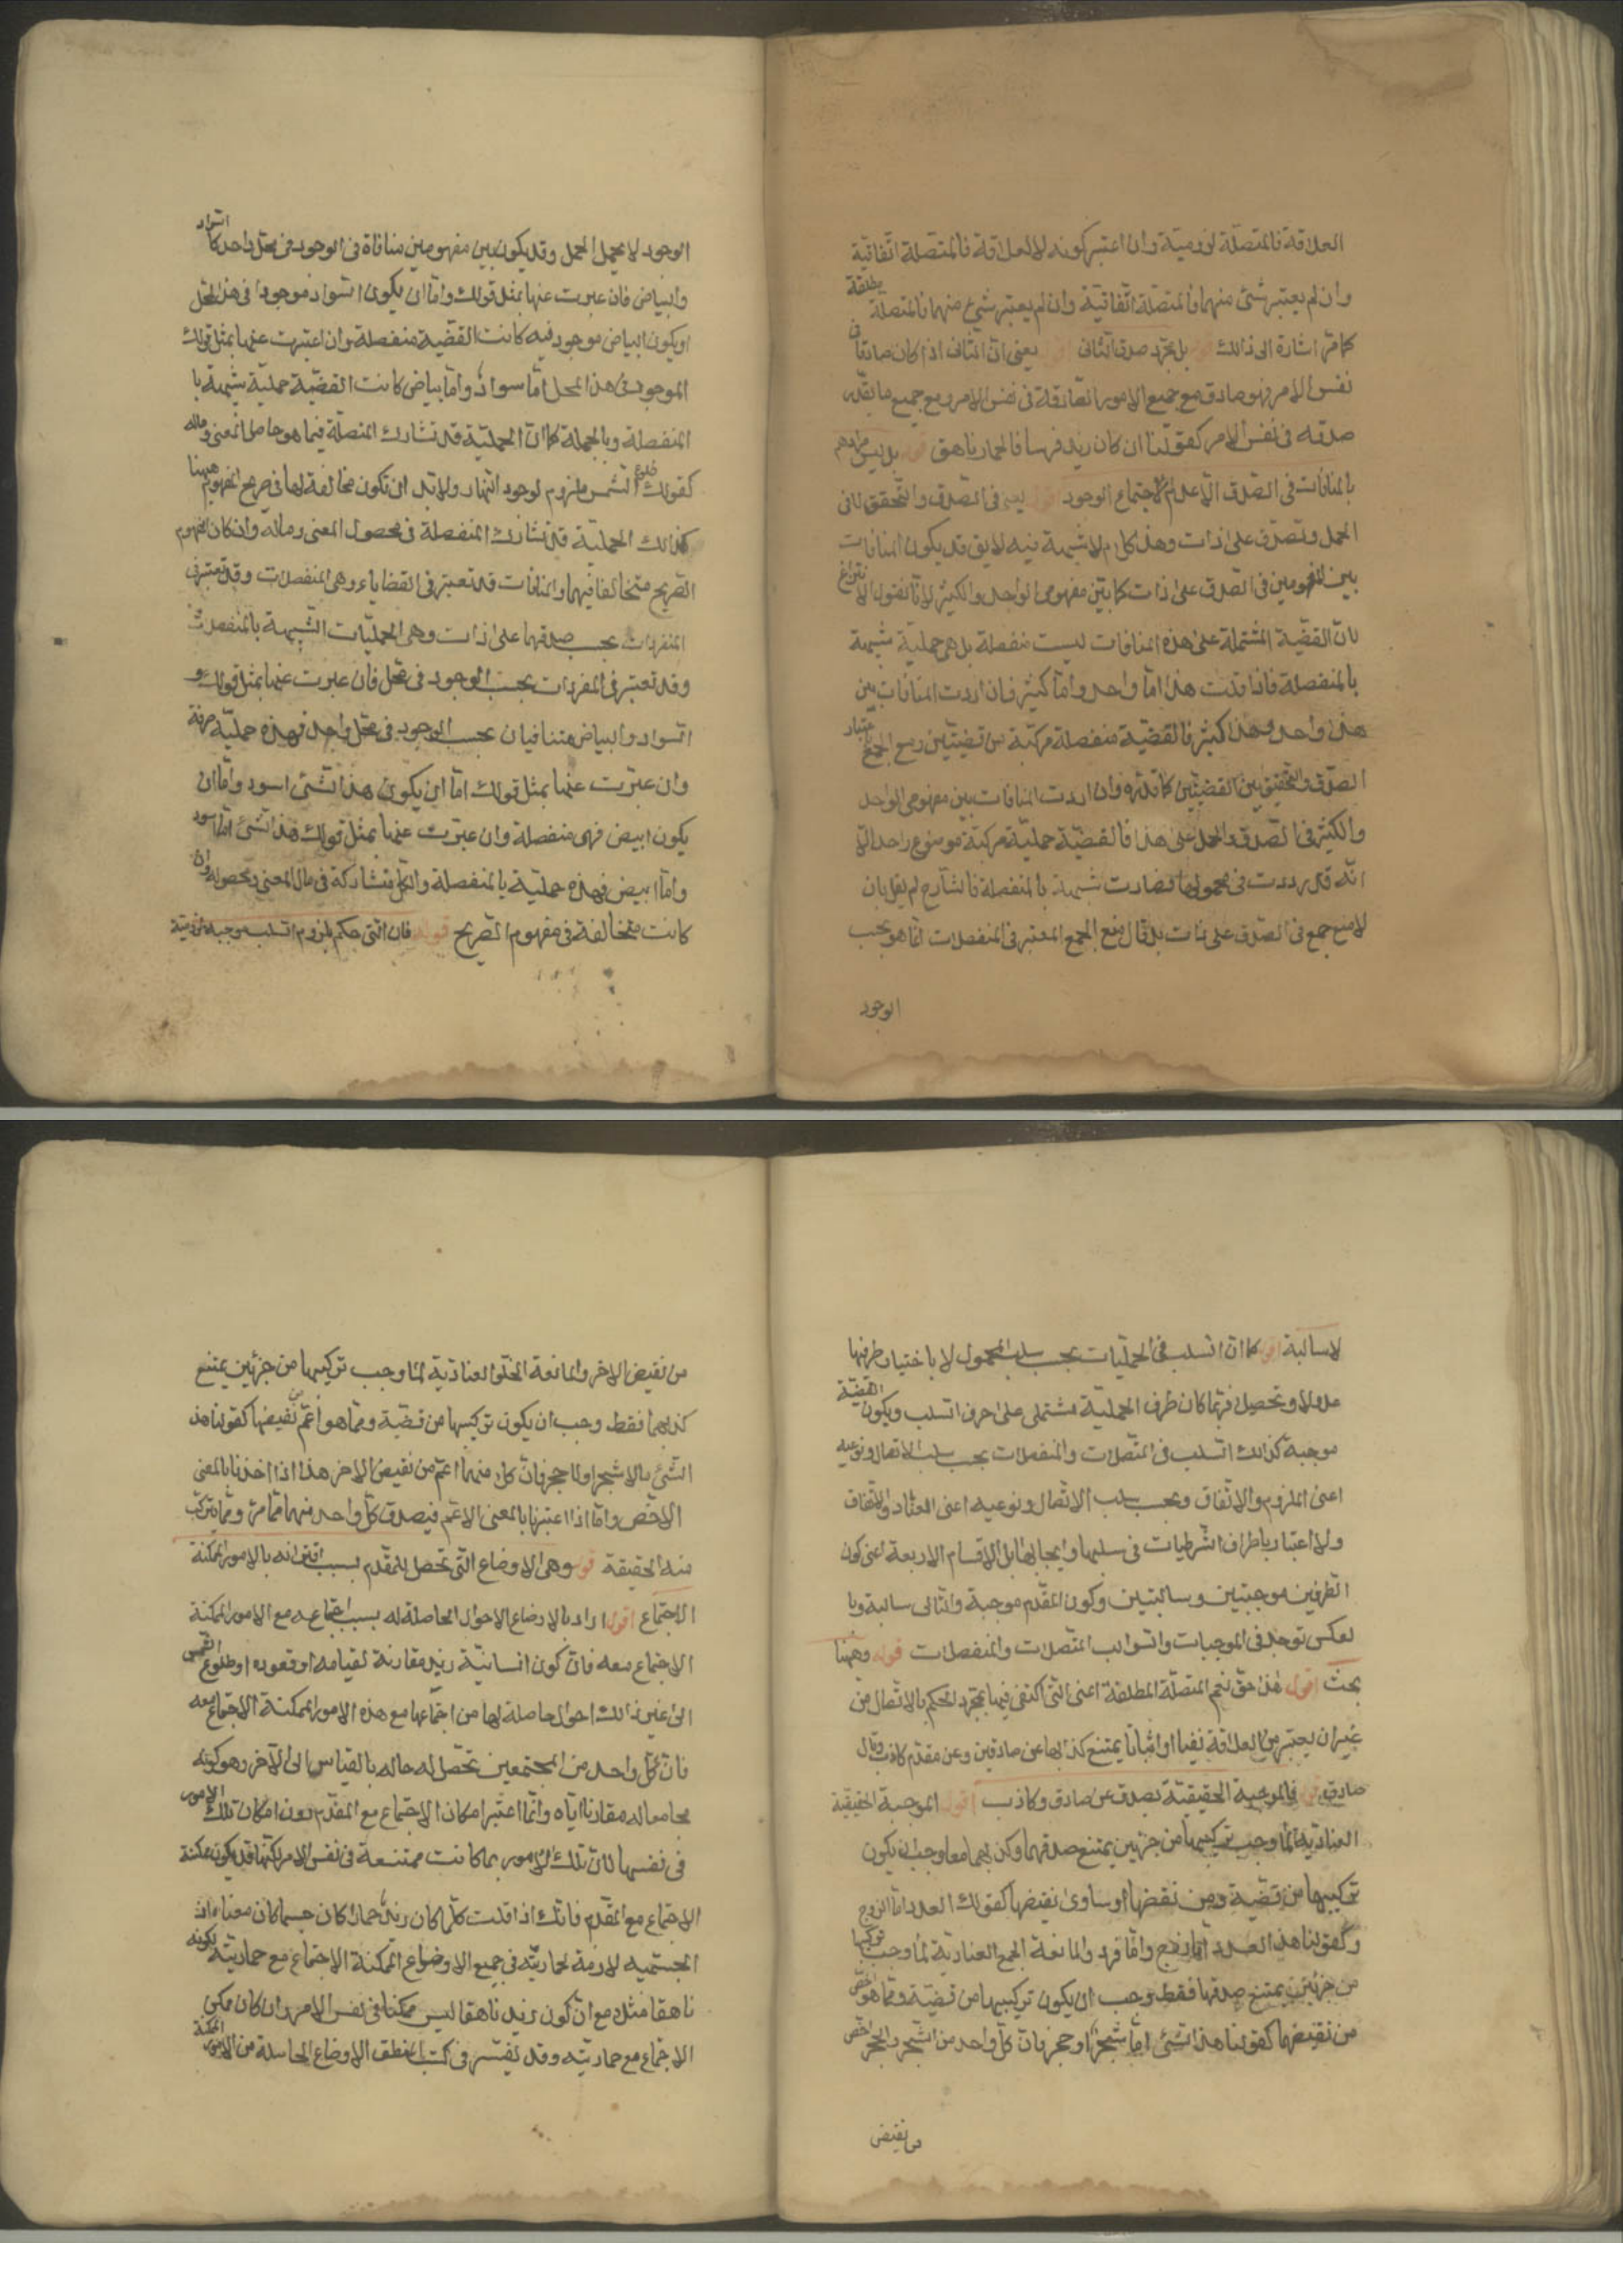 العلاقة فالمتصلة لزومية وان اعتبر كونه لا لعلاقة فالمتصلة اتفاقية
وان لم يعتبر شئ منهما فالمتصلة اتفاقية وان لم يعتبر شئ منهما فالمتصلة مطلقة
كما مر اشارة الى ذالك قوله بل بمجرد صدق التالى اقول يعنى ان التالى اذا كان صادقا فى
نفس الامر فهو صادق مع جميع الامور الصادقة فى نفس الامر ومع جميع ما يقدر
صدقه فى نفس الامر كقولنا ان كان زيد فرسا فالحمار ناهق قوله بل ليس مرادهم
بالمنافات فى الصدق الا عدم الاجتماع الوجود اقول يعنى فى الصدق والتحقق لا فى
الحمل والصدق على ذات وهذا كلام لا شبهة فيه لا يق قد يكون المنافات
بين المفهومين فى الصدق على ذات كما بين مفهومى الواحد والكثير لانا نقول لا نزاع
لان القضية المشتملة على هذه المنافات ليست منفصلة بل هى حملية شبيهة
بالمنفصلة فاذا قلت هذا اما واحد واما كثير فان اردت المنافات بين
هذا واحد وهذا كثير فالقضية منفصلة مركبة من قضيتين ومنع الجمع باعتبار
الصدق والتحقيق بين القضيتين كما تذكره وان اردت المنافات بين مفهومى الواحد
والكثير فى الصدق والحمل على هذا فالقضية حملية مركبة موضوع واحد الا
انه قد رددت فى محمولها فصارت شبيهة بالمنفصلة فالشارح لم يقل بان
لا منع جمع فى الصدق على ذات بل قال منع الجمع المعتبر فى المنفصلات انما هو بحسب
الوجود
الوجود لا بحمل الحمل وقد يكون بين مفهومين منافاة فى الوجود فى محل واحد كالسواد
والبياض فان عبرت عنها بمثل قولك واما ان يكون السواد موجودا فى هذا المحل
او يكون البياض موجود فيه كانت القضية منفصلة وان اعتبرت عنهما بمثل قولك
الموجود فى هذا المحل اما سواد واما بياض كانت القضية حملية شبيهة با
المنفصلة وبالجملة كما ان الحملية قد تشارك المتصلة فيما هو حاصل المعنى وماله
كقولك طلوع الشمس ملزوم لوجود النهار ولا بد ان تكون مخالفة لها فى صريح المفهوم ههنا
كذالك الحملية قد تشارك المنفصلة فى محصول المعنى وماله وان كان المفهوم
الصريح متخالفا فيهما والمنافات قد تعتبر فى القضاياء وهى المنفصلات وقد تعتبر فى
المنفردات بحسب صدقهما على ذات وهى الحمليات الشبيهة بالمنفصلات
وقد تعتبر فى المفردات بحسب الوجود فى محل فان عبرت عنهما بمثل قولك و
السواد والبياض متنافيان بحسب الوجود فى محل واحد فهذه حملية صرفة
وان عبرت عنهما بمثل قولك اما ان يكون هذا الشئ اسود واما ان
يكون ابيض فهى منفصلة وان عبرت عنهما بمثل قولك هذا الشئ اما اسود
واما ابيض فهذه حملية بالمنفصلة والكل متشاركة فى مال المعنى ومحصوله وان
كانت متخالفة فى مفهوم الصريح قوله فان التى حكم بلزوم السلب موجبة لزومية
لا سالبة اقول كما ان السلب فى الحمليات بحسب سلب المحمول لا باختيار طرفيها
عدولا وتحصيلا فربما كان طرف الحملية مشتملى على حرف السلب ويكون القضية
موجبة كذالك السلب فى المتصلات والمنفصلات بحسب سلب الاتصال ونوعيه
اعنى الملزوم والاتفاق وبحسب سلب الاتصال ونوعيه اعنى العناد والاتفاق
ولا اعتبار باطراف الشرطيات فى سلبها وايجابها بل الاقسام الاربعة اعنى كون
الطرفين موجبتين وسالبتين وكون المقدم موجبة والتالى سالبة وبا
لعكس توجد فى الموجبات والسوالب المتصلات والمنفصلات قوله وههنا
بحث اقول هذا حق نعم المتصلة المطلقة اعنى التى اكتفى فيها بمجرد الحكم بالاتصال من
غير ان يعتبر من العلاقة نفيا او اثباتا يمتنع كذبها عن صادقين وعن مقدم كاذب وتال
صادق قوله فالموجبة الحقيقية تصدق عن صادق وكاذب اقول الموجبة الحقيقية
العنادية لما وجب تركيبها من جزئين يمتنع صدقهما وكذبهما معا وجب ان يكون
تركيبها من قضية ومن نقضها او ساوى نقيضها كقولك العدد اما الزوج
وكقولنا هذا العدد اما زوج واما فرد والمانعة الجمع العنادية لما وجب تركيبها
من جزئين يمتنع صدقهما فقط وجب ان يكون تركيبها من قضية ومما هو اخص
من نقيضها كقولنا هذا الشئ اما شجر او حجر فان كل واحد من الشجر والحجر اخص
من نقيض
من نقيض الاخر والمانعة الخلو العنادية لما وجب تركيبها من جزئين يمتنع
كذبهما فقط وجب ان يكون تركيبها من قضية ومما هو اعم من نقيضها كقولنا هذا
الشئ اما لا شجر او لا حجر فان كل منهما اعم من نقيض الاخر هذا اذا اخذنا بالمعنى
الاخص واما اذا اعتبرنا بالمعنى الاعم فيصدق كل واحد منهما مما مر ومما يتركب
منه الحقيقة قوله وهى الاوضاع التى تحصل للمقدم بسبب اقترانه بالامور الممكنة
الاجتماع اقول اراد بالاوضاع الاحوال الحاصلة له بسبب اجتماعه مع الامور الممكنة
الاجتماع معه فان كون انسانية زيد مقارنة لقيامه او قعوده او طلوع الشمس
الى غير ذالك احوال حاصلة لها من اجتماعها مع هذه الامور الممكنة الاجتماع معه
فان كل واحد من المجتمعين تحصل له حاله بالقياس الى الآخر وهو كونه
مجامعا له مقارنا اياه وانما اعتبر امكان الاجتماع مع المقدم دون امكان تلك الامور
فى نفسها لان تلك الامور بما كانت ممتنعة فى نفس الامر لكنها قد يكون ممكنة
الاجتماع مع المقدم فانك اذا قلت كلما كان زيد حمارا كان جسما كان معناه ان
الجسميه لازمة لحماريته فى جميع الاوضاع الممكنة الاجتماع مع حماريته لكونه
ناهقا مثلا مع ان كون زيد ناهقا ليس ممكنا فى نفس الامر وان كان ممكن
الاجتماع مع حماريته وقد يفسر فى كتب المنطق الاوضاع الحاصلة من الامور الممكنة